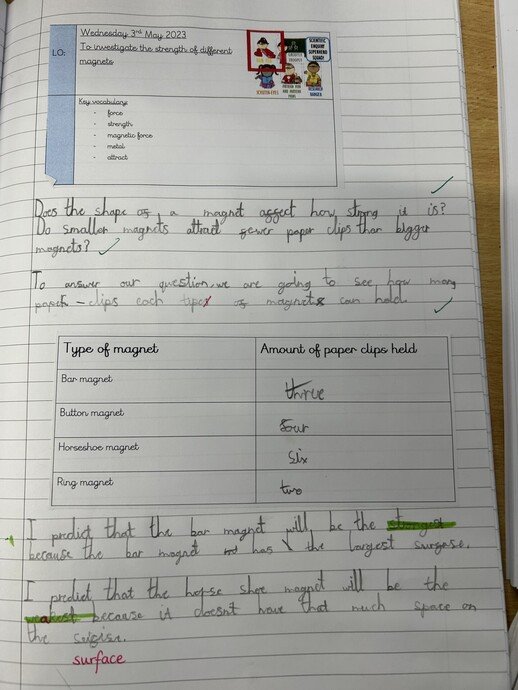 LO:
Wednesday 3rd May 2023
To investigate the strength of different
magnets
SCIENTIFIC
ENQUIRY
SUPERHERO
SQUAD!
Key vocabulary:
- force
- strength
- magnetic force
- metal
- attract
Does the shape of a magnet affect how strong it is?
Do smaller magnets attract fewer paper clips than bigger
magnets?
To answer our question, we are going to see how many
clips each type of magnet can hold.
Type of magnet Amount of paper clips held
Bar magnet three
Button magnet four
Horseshoe magnet six
Ring magnet two
I predict that the bar magnet will be the strongest
because the bar magnet has the largest surfase.
I predict that the horse shoe magnet will be the
weakest because it doesnt have that much space on
the
surface